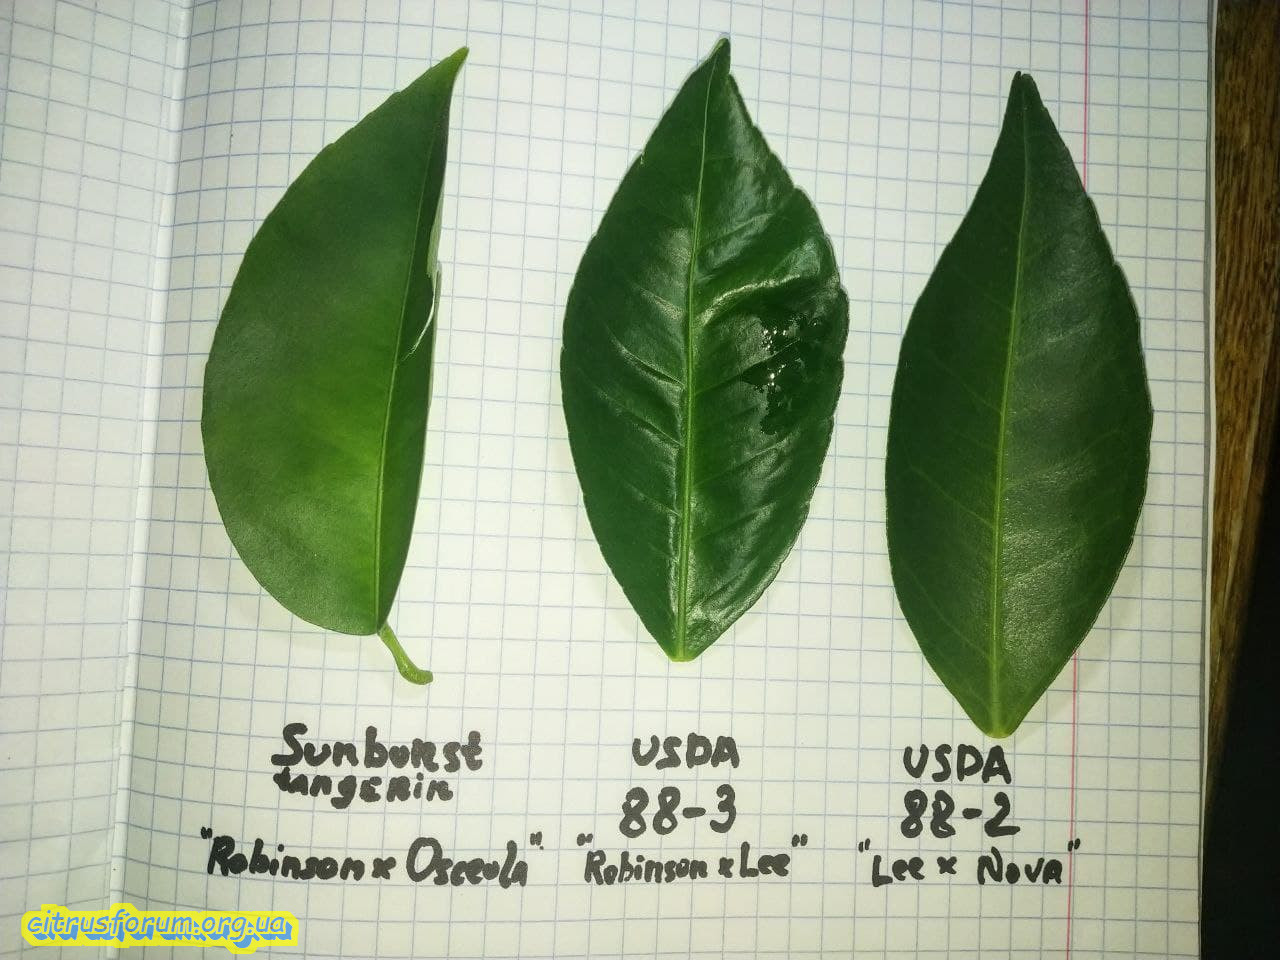 Sunburst
tangerin
"Robinson x Osceola"
USDA
88-3
"Robinson x Lee"
USDA
88-2
"Lee x Nova"
citrusforum.org.ua